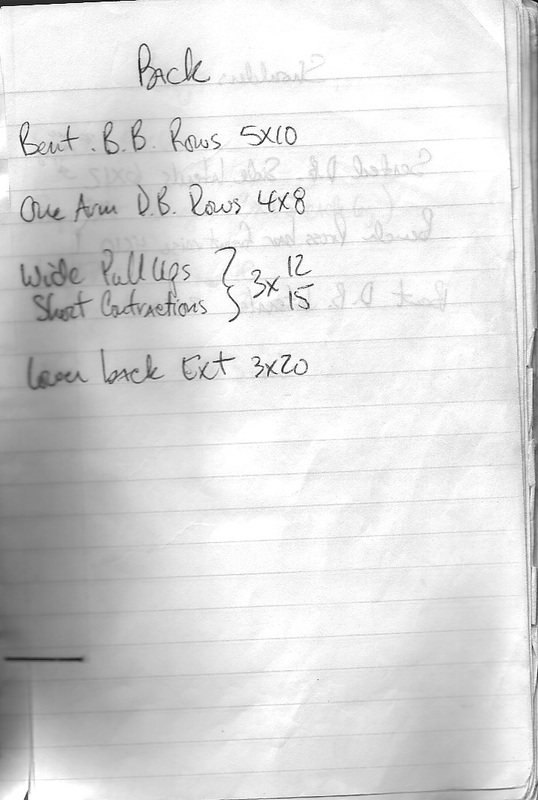 Back
Bent. B.B. Rows 5x10
One Arm D.B. Rows 4x8
Wide Pull Ups } 3x 12
Short Contractions } 15
Lower back Ext 3x20